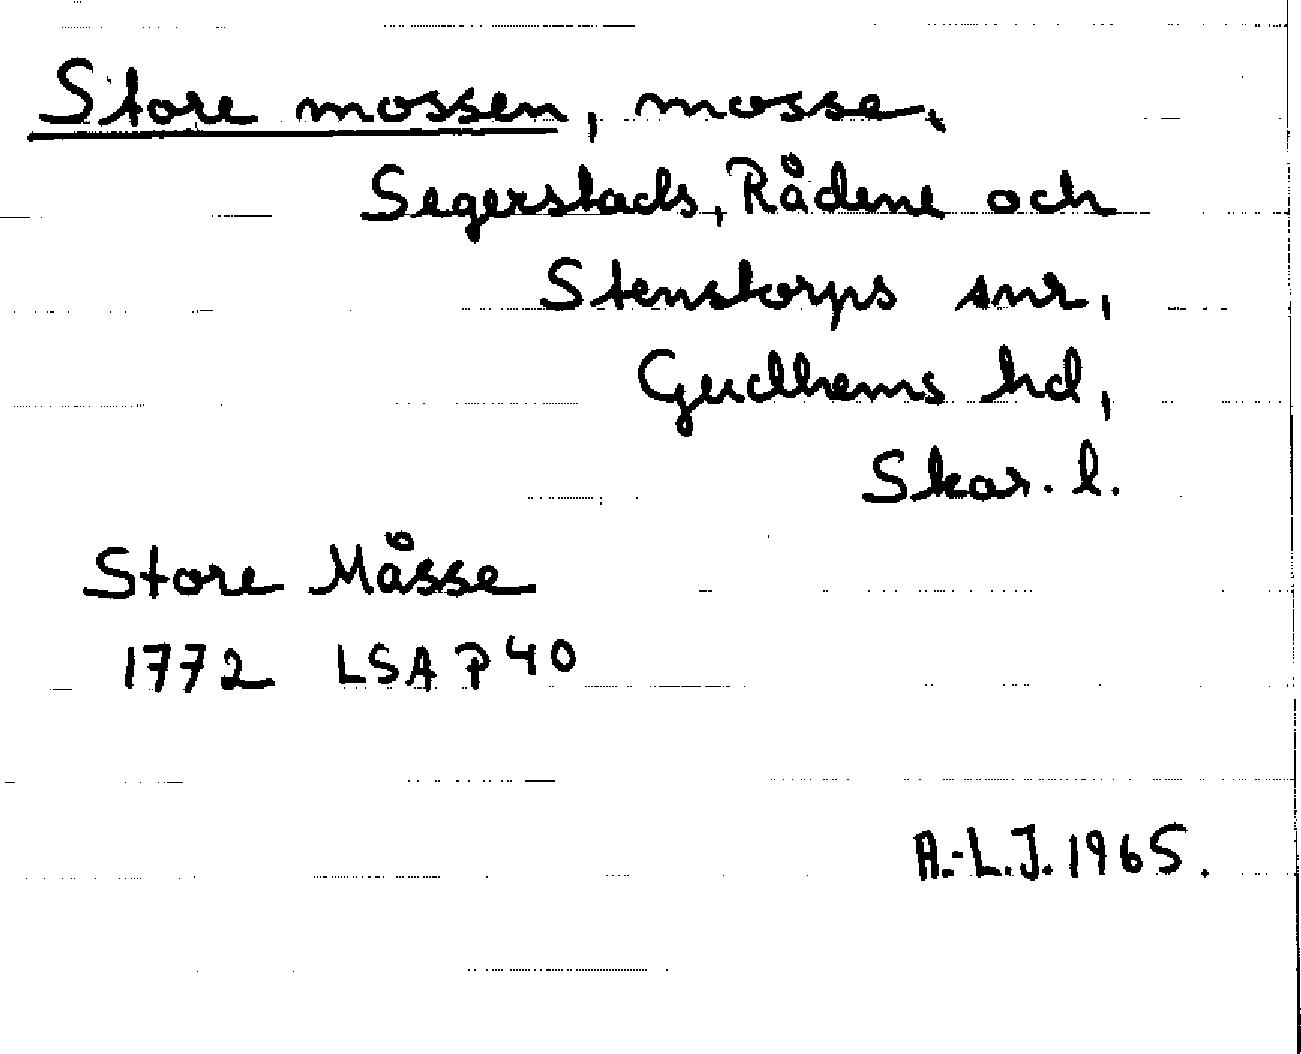 Store mossen, mosse,
Segerstads, Rådene och
Stenstorps snr,
Gudhems hd,
Skar. l.
Store Måsse
1772 LSA P 40
A.-L.J. 1965.